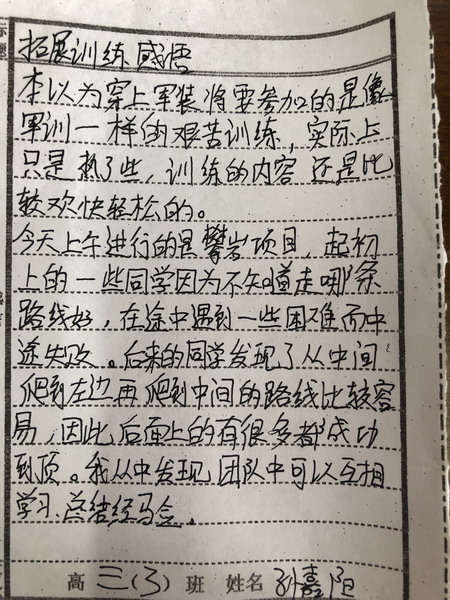 拓展训练感悟
本以为穿上军装将要参加的是像
军训一样的艰苦训练，实际上
只是热了些，训练的内容还是比
较欢快轻松的。
今天上午进行的是攀岩项目，起初
上的一些同学因为不知道走哪条
路线好，在途中遇到一些困难而中
途失败。后来的同学发现了从中间
爬到左边再爬到中间的路线比较容
易，因此后面上的有很多都成功
到顶。我从中发现团队中可以互相
学习、总结经验。
高三(3)班 姓名 孙嘉阳